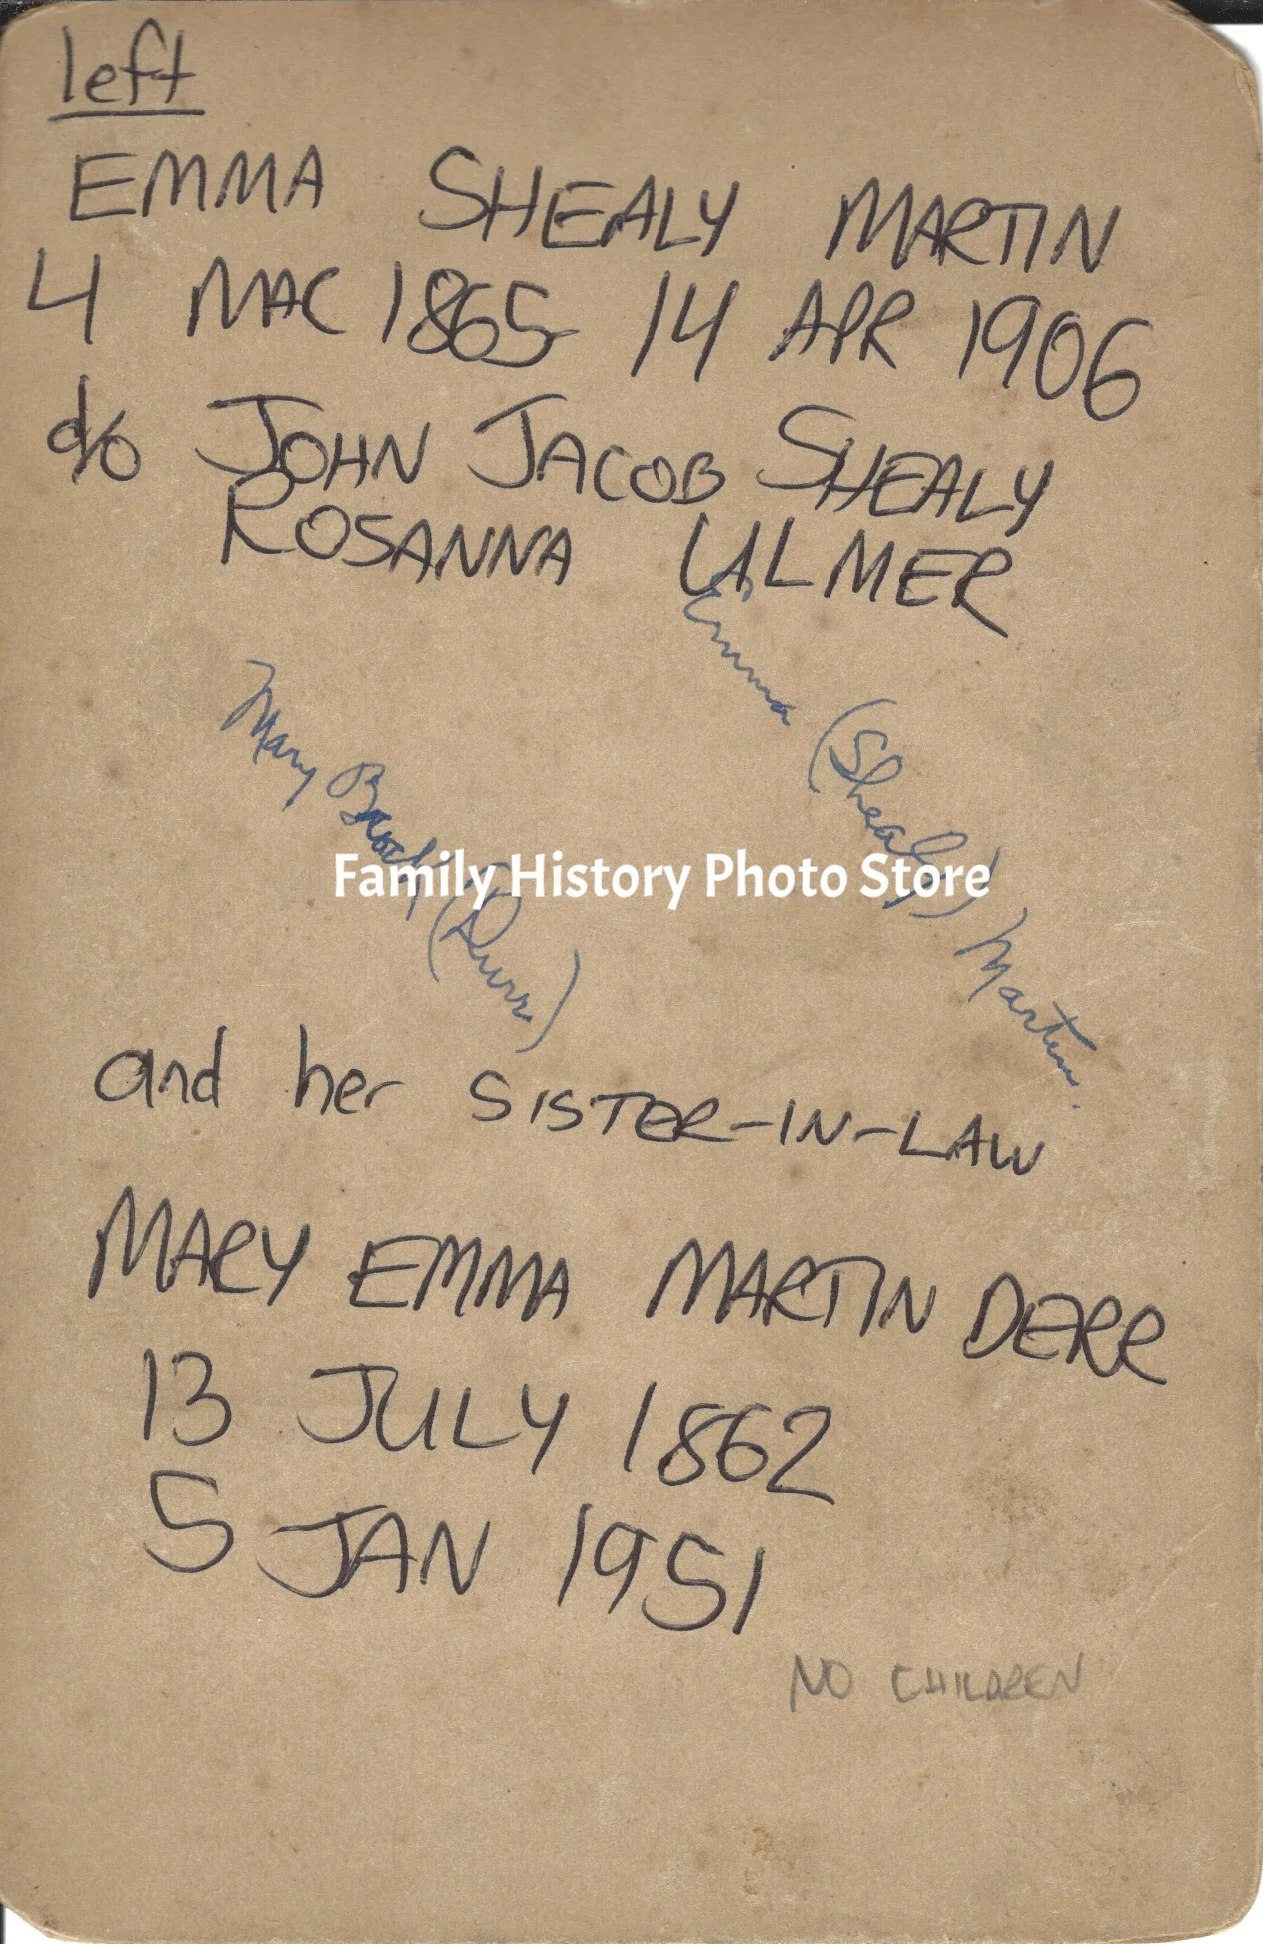 left
EMMA SHEALY MARTIN
4 MAC 1865 14 APR 1906
d/o JOHN JACOB SHEALY
ROSANNA ULMER
Emma (Shealy) Martin
Mary
Family History Photo Store
and her SISTER-IN-LAW
MARY EMMA MARTIN DERR
13 JULY 1862
5 JAN 1951
NO CHILDREN